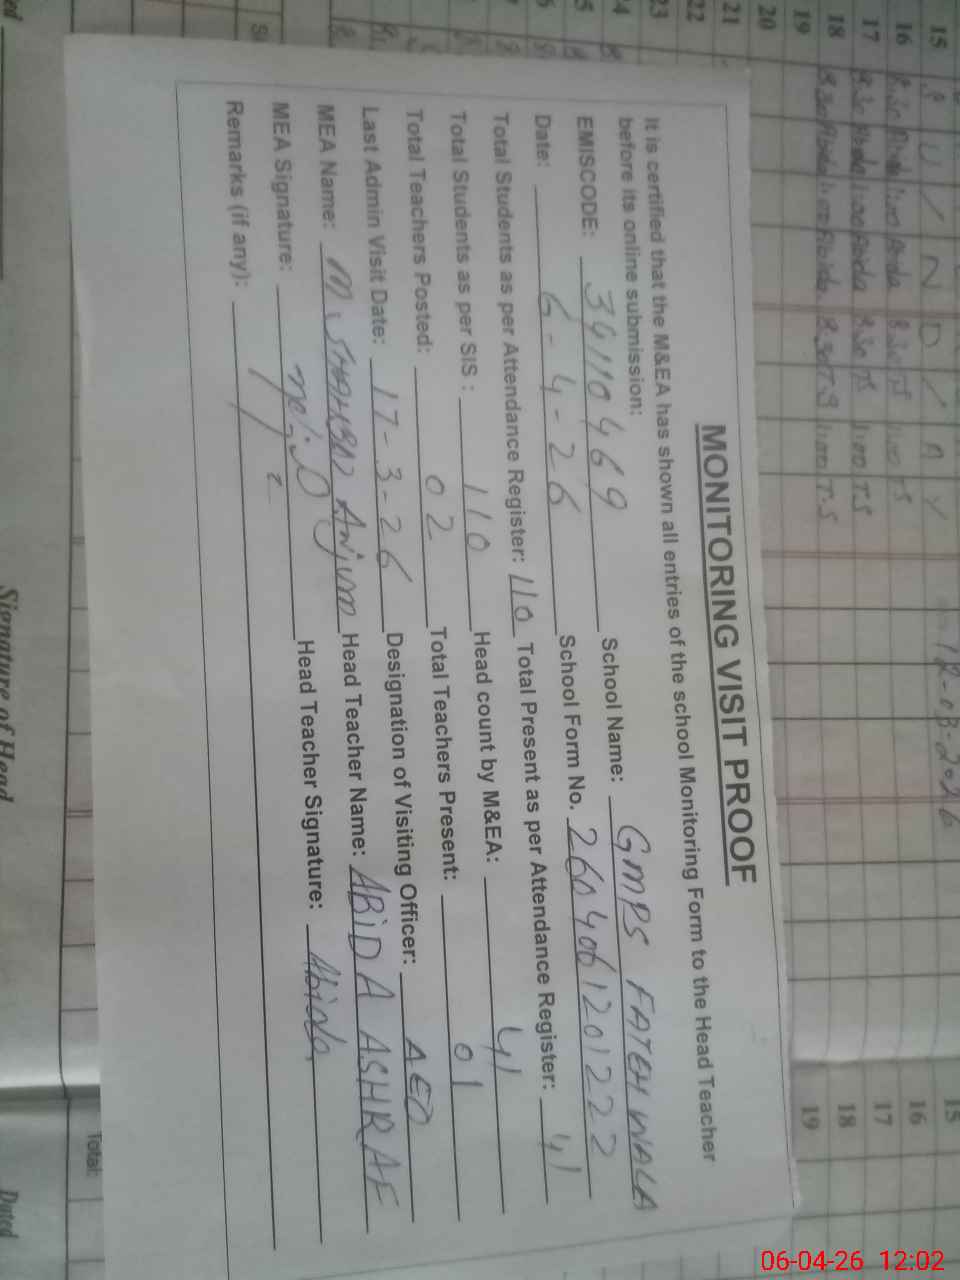 MONITORING VISIT PROOF
It is certified that the M&EA has shown all entries of the school Monitoring Form to the Head Teacher
before its online submission:
EMISCODE: 34110469 School Name: GMPS FATEH WALA
Date: 6-4-26 School Form No. 2604061201222
Total Students as per Attendance Register: 110 Total Present as per Attendance Register: 41
Total Students as per SIS : 110 Head count by M&EA: 41
Total Teachers Posted: 02 Total Teachers Present: 01
Last Admin Visit Date: 17-3-26 Designation of Visiting Officer: AEO
MEA Name: M SHAHBAZ Anjum Head Teacher Name: ABiDA ASHRAF
MEA Signature: Head Teacher Signature: Abida
Remarks (if any):
15 S U / N D / A Y
16
17
18
19
20
21
22
23
24
12-03-2026
15
16
17
18
19
Total:
Signature of Head
Dated
06-04-26 12:02